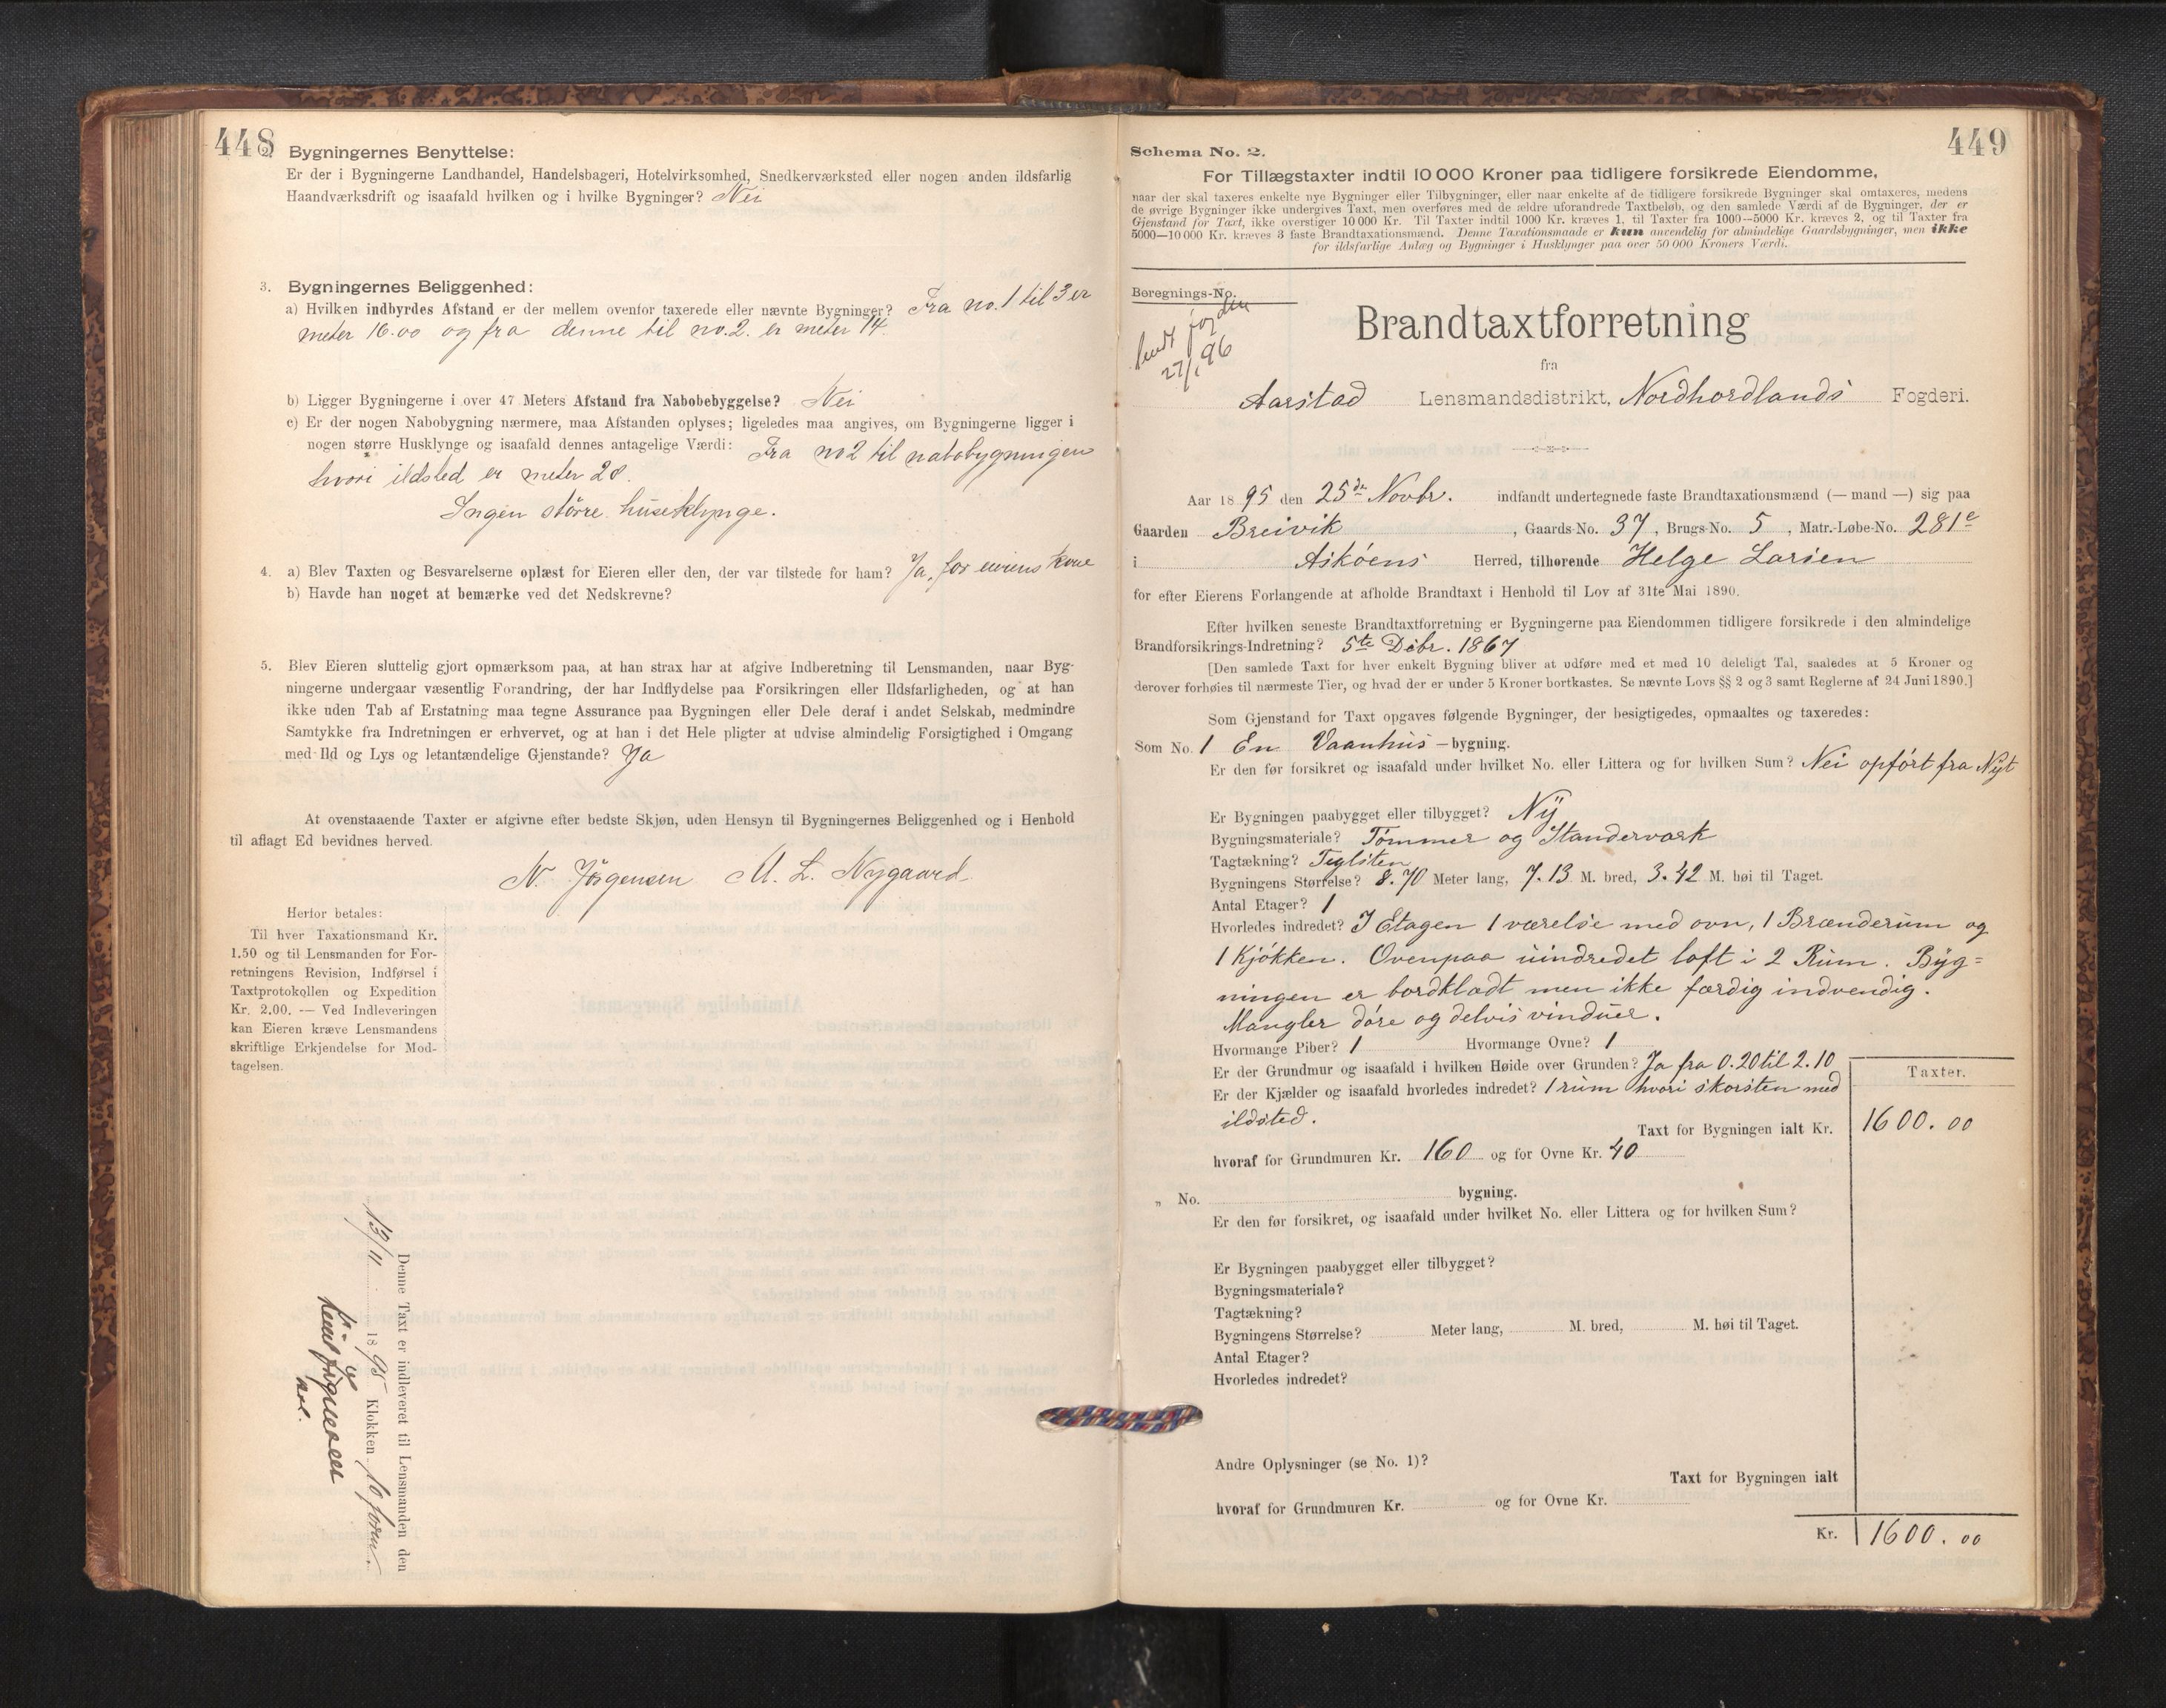 448
2. Bygningernes Benyttelse:
Er der i Bygningerne Landhandel, Handelsbageri, Hotelvirksomhed, Snedkerværksted eller nogen anden ildsfarlig
Haandværksdrift og isaafald hvilken og i hvilke Bygninger? Nei
3. Bygningernes Beliggenhed:
a) Hvilken indbyrdes Afstand er der mellem ovenfor taxerede eller nævnte Bygninger? Fra no. 1 til 3 er
meter 16.00 og fra denne til no. 2. er meter 14.
b) Ligger Bygningerne i over 47 Meters Afstand fra Nabobebyggelse? Nei
c) Er der nogen Nabobygning nærmere, maa Afstanden oplyses; ligeledes maa angives, om Bygningerne ligger i
nogen større Husklynge og isaafald dennes antagelige Værdi: Fra no 2 til nabobygningen
hvori ildsted er meter 28.
Ingen större huseklynge.
4. a) Blev Taxten og Besvarelserne oplæst for Eieren eller den, der var tilstede for ham? Ja, for eierens kone
b) Havde han noget at bemærke ved det Nedskrevne?
5. Blev Eieren sluttelig gjort opmærksom paa, at han strax har at afgive Indberetning til Lensmanden, naar Byg-
ningerne undergaar væsentlig Forandring, der har Indflydelse paa Forsikringen eller Ildsfarligheden, og at han
ikke uden Tab af Erstatning maa tegne Assurance paa Bygningen eller Dele deraf i andet Selskab, medmindre
Samtykke fra Indretningen er erhvervet, og at han i det Hele pligter at udvise almindelig Forsigtighed i Omgang
med Ild og Lys og letantændelige Gjenstande? Ja
At ovenstaaende Taxter er afgivne efter bedste Skjøn, uden Hensyn til Bygningernes Beliggenhed og i Henhold
til aflagt Ed bevidnes herved.
N. Jörgensen M. L. Nygaard.
Herfor betales:
Til hver Taxationsmand Kr.
1.50 og til Lensmanden for For-
retningens Revision, Indførsel i
Taxtprotokollen og Expedition
Kr. 2.00. — Ved Indleveringen
kan Eieren kræve Lensmandens
skriftlige Erkjendelse for Mod-
tagelsen.
Denne Taxt er indleveret til Lensmanden den
13/11 1895 Klokken 10 form.
449
Schema No. 2.
For Tillægstaxter indtil 10 000 Kroner paa tidligere forsikrede Eiendomme,
naar der skal taxeres enkelte nye Bygninger eller Tilbygninger, eller naar enkelte af de tidligere forsikrede Bygninger skal omtaxeres, medens
de øvrige Bygninger ikke undergives Taxt, men overføres med de ældre uforandrede Taxtbeløb, og den samlede Værdi af de Bygninger, der er
Gjenstand for Taxt, ikke overstiger 10 000 Kr. Til Taxter indtil 1000 Kr. kræves 1, til Taxter fra 1000—5000 Kr. kræves 2, og til Taxter fra
5000—10 000 Kr. kræves 3 faste Brandtaxationsmænd. Denne Taxationsmaade er kun anvendelig for almindelige Gaardsbygninger, men ikke
for ildsfarlige Anlæg og Bygninger i Husklynger paa over 50 000 Kroners Værdi.
Beregnings-No.
27/1 96
Brandtaxtforretning
fra
Aarstad Lensmandsdistrikt, Nordhordlands Fogderi.
Aar 1895 den 25de Novbr. indfandt undertegnede faste Brandtaxationsmænd (— mand —) sig paa
Gaarden Breivik, Gaards-No. 37, Brugs-No. 5, Matr.-Løbe-No. 281c
i Askøens Herred, tilhørende Helge Larsen
for efter Eierens Forlangende at afholde Brandtaxt i Henhold til Lov af 31te Mai 1890.
Efter hvilken seneste Brandtaxtforretning er Bygningerne paa Eiendommen tidligere forsikrede i den almindelige
Brandforsikrings-Indretning? 5te Debr. 1867
[Den samlede Taxt for hver enkelt Bygning bliver at udføre med et med 10 deleligt Tal, saaledes at 5 Kroner og
derover forhøies til nærmeste Tier, og hvad der er under 5 Kroner bortkastes. Se nævnte Lovs §§ 2 og 3 samt Reglerne af 24 Juni 1890.]
Som Gjenstand for Taxt opgaves følgende Bygninger, der besigtigedes, opmaaltes og taxeredes:
Som No. 1 En Vaanhus-bygning.
Er den før forsikret og isaafald under hvilket No. eller Littera og for hvilken Sum? Nei opført fra Nyt
Er Bygningen paabygget eller tilbygget? Ny
Bygningsmateriale? Tømmer og Standerværk
Tagtækning? Teglsten
Bygningens Størrelse? 8.70 Meter lang, 7.13 M. bred, 3.42 M. høi til Taget.
Antal Etager? 1
Hvorledes indredet? I Etagen 1 værelse med ovn, 1 Brænderum og
1 Kjøkken. Ovenpaa uindredet loft i 2 Rum. Byg=
ningen er bordklædt men ikke færdig indvendig.
Mangler døre og delvis vinduer.
Hvormange Piber? 1 Hvormange Ovne? 1
Er der Grundmur og isaafald i hvilken Høide over Grunden? Ja fra 0.20 til 2.10
Er der Kjælder og isaafald hvorledes indredet? 1 rum hvori skorsten med
ildsted.
Taxter.
Taxt for Bygningen ialt Kr. 1600.00
hvoraf for Grundmuren Kr. 160 og for Ovne Kr. 40
„ No. bygning.
Er den før forsikret, og isaafald under hvilket No. eller Littera og for hvilken Sum?
Er Bygningen paabygget eller tilbygget?
Bygningsmateriale?
Tagtækning?
Bygningens Størrelse? Meter lang, M. bred, M. høi til Taget.
Antal Etager?
Hvorledes indredet?
Andre Oplysninger (se No. 1)?
Taxt for Bygningen ialt
hvoraf for Grundmuren Kr. og for Ovne Kr.
Kr. 1600.00